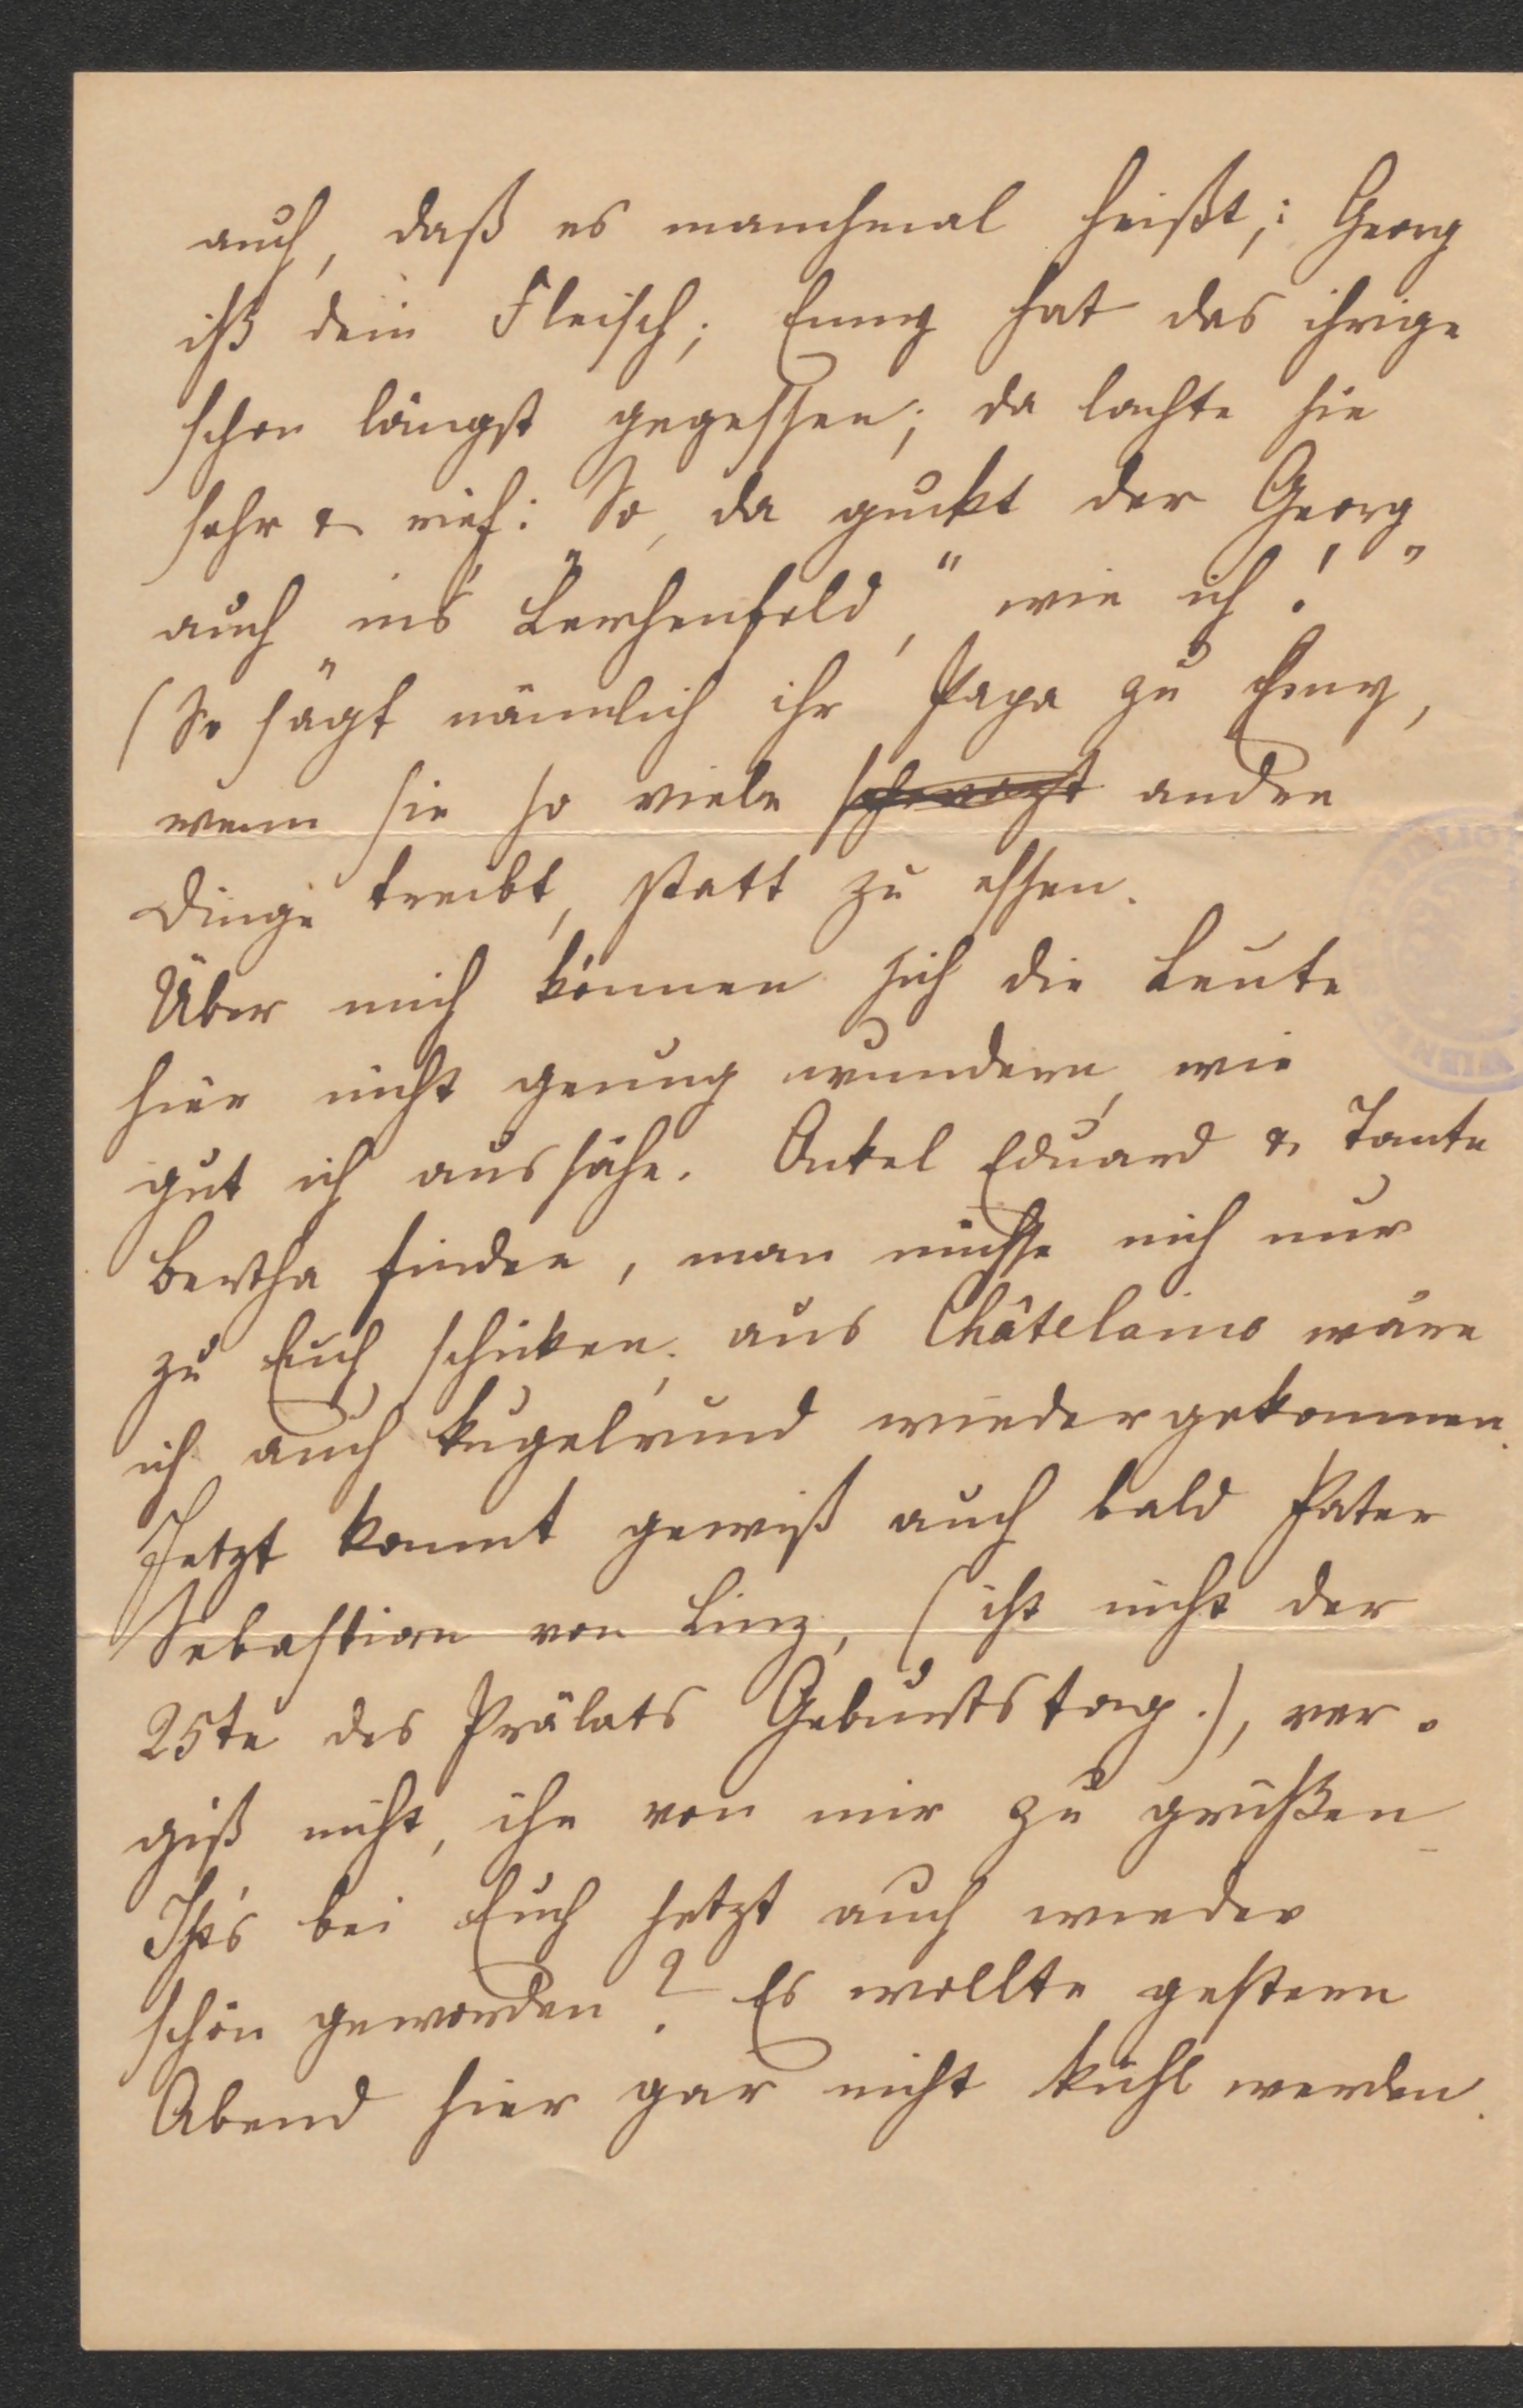 auch, daß es manchmal heißt,: Georg
iß dein Fleisch; Emmy hat das ihrige
schon längst gegessen; da lachte sie
sehr & rief: So, da guckt der Georg
auch „in's „Lerchenfeld," wie ich!"
(So sagt nämlich ihr Papa zu Emmy,
wenn sie so viele andre
Dinge treibt, statt zu essen.
Über mich können sich die Leute
hier nicht genug wundern, wie
gut ich aussähe. Onkel Eduard & Tante
Bertha finden, man müsse mich nur
zu Euch schicken; aus Châtelaine wäre
ich auch kugelrund wiedergekommen.
Jetzt kommt gewiß auch bald Pater
Sebastian von Linz, (ist nicht der
25te des Prälats Geburtstag.), ver-
giß nicht, ihn von mir zu grüßen
Ist's bei Euch jetzt auch wieder
schön geworden? Es wollte gestern
Abend hier gar nicht kühl werden.